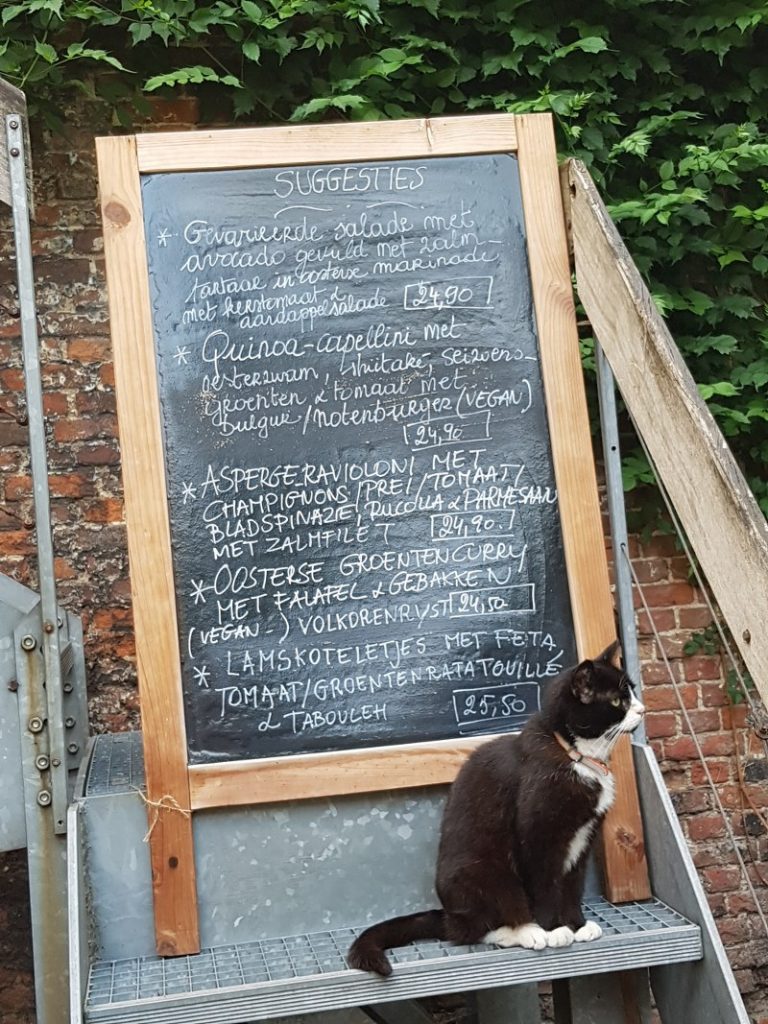 SUGGESTIES
* Gevarieerde salade met
avocado gevuld met zalm-
tartaar in oosterse marinade
met kerstomaat &
aardappelsalade 24,90
* Quinoa-capellini met
oesterzwam, shiitaké, seizoens-
groenten & tomaat met
bulgur/notenburger (VEGAN)
24,90
* ASPERGERAVIOLONI MET
CHAMPIGNONS/PREI/TOMAAT/
BLADSPINAZIE, RUCOLLA & PARMESAAN
MET ZALMFILET 24,90.
* OOSTERSE GROENTENCURRY
MET FALAFEL & GEBAKKEN
(VEGAN-) VOLKORENRYST 24,50
* LAMSKOTELETJES MET FETA,
TOMAAT/GROENTENRATATOUILLE
& TABOULEH 25,50